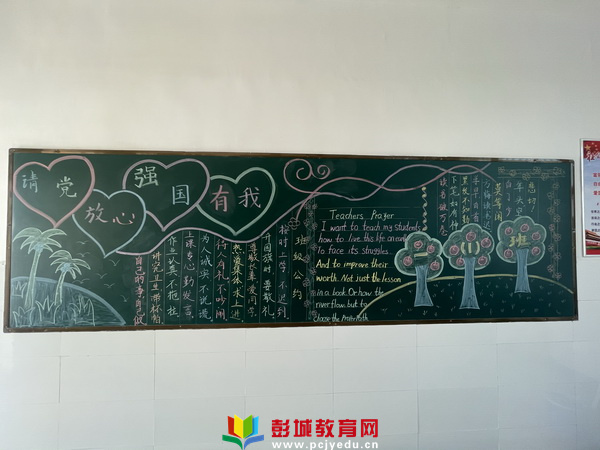 请党放心
强国有我
班级公约
按时上学不迟到
升国旗时要敬礼
尊敬长辈爱同学
热爱集体求上进
待人有礼不吵闹
为人诚实不说谎
上课专心勤发言
作业认真不拖拉
讲究卫生带杯布
自己的事自己做
Teachers Prayer
I want to teach my students
how to live this life on earth
To face its struggles
And to improve their
worth. Not just the lesson
in a book. Or how the
river flow. but to
choose the
读书破万卷
下笔如有神
莫等闲
白了少年头
空悲切
一(1)班
彭城教育网
www.pcjyedu.cn